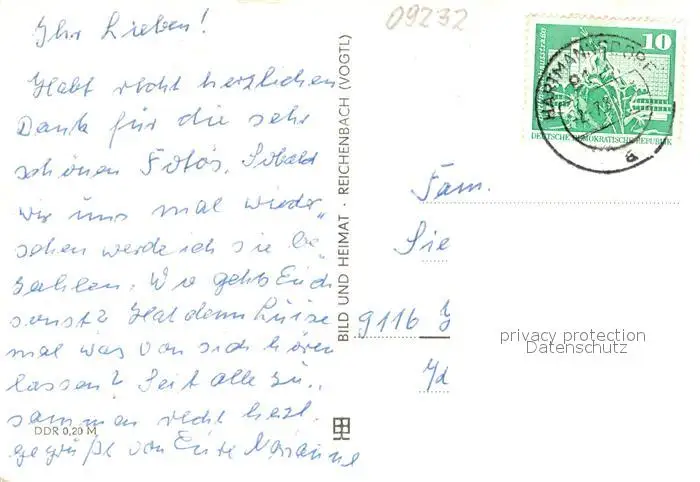 Ihr Lieben!
Habt recht herzlichen
Dank für die sehr
schönen Fotos. Sobald
wir uns mal wieder„
sehen werde ich sie be„
zahlen. Wie gehts Euch
sonst? Hat denn Luise
mal was von sich hören
lassen? Seit alle zu„
sammen recht herzl.
gegrüßt von Eure Marianne
DDR 0,20 M
BILD UND HEIMAT · REICHENBACH (VOGTL)
09232
10
HARTMANNSDORF
DEUTSCHE DEMOKRATISCHE REPUBLIK
a
Fam.
Sie
9116
privacy protection
Datenschutz